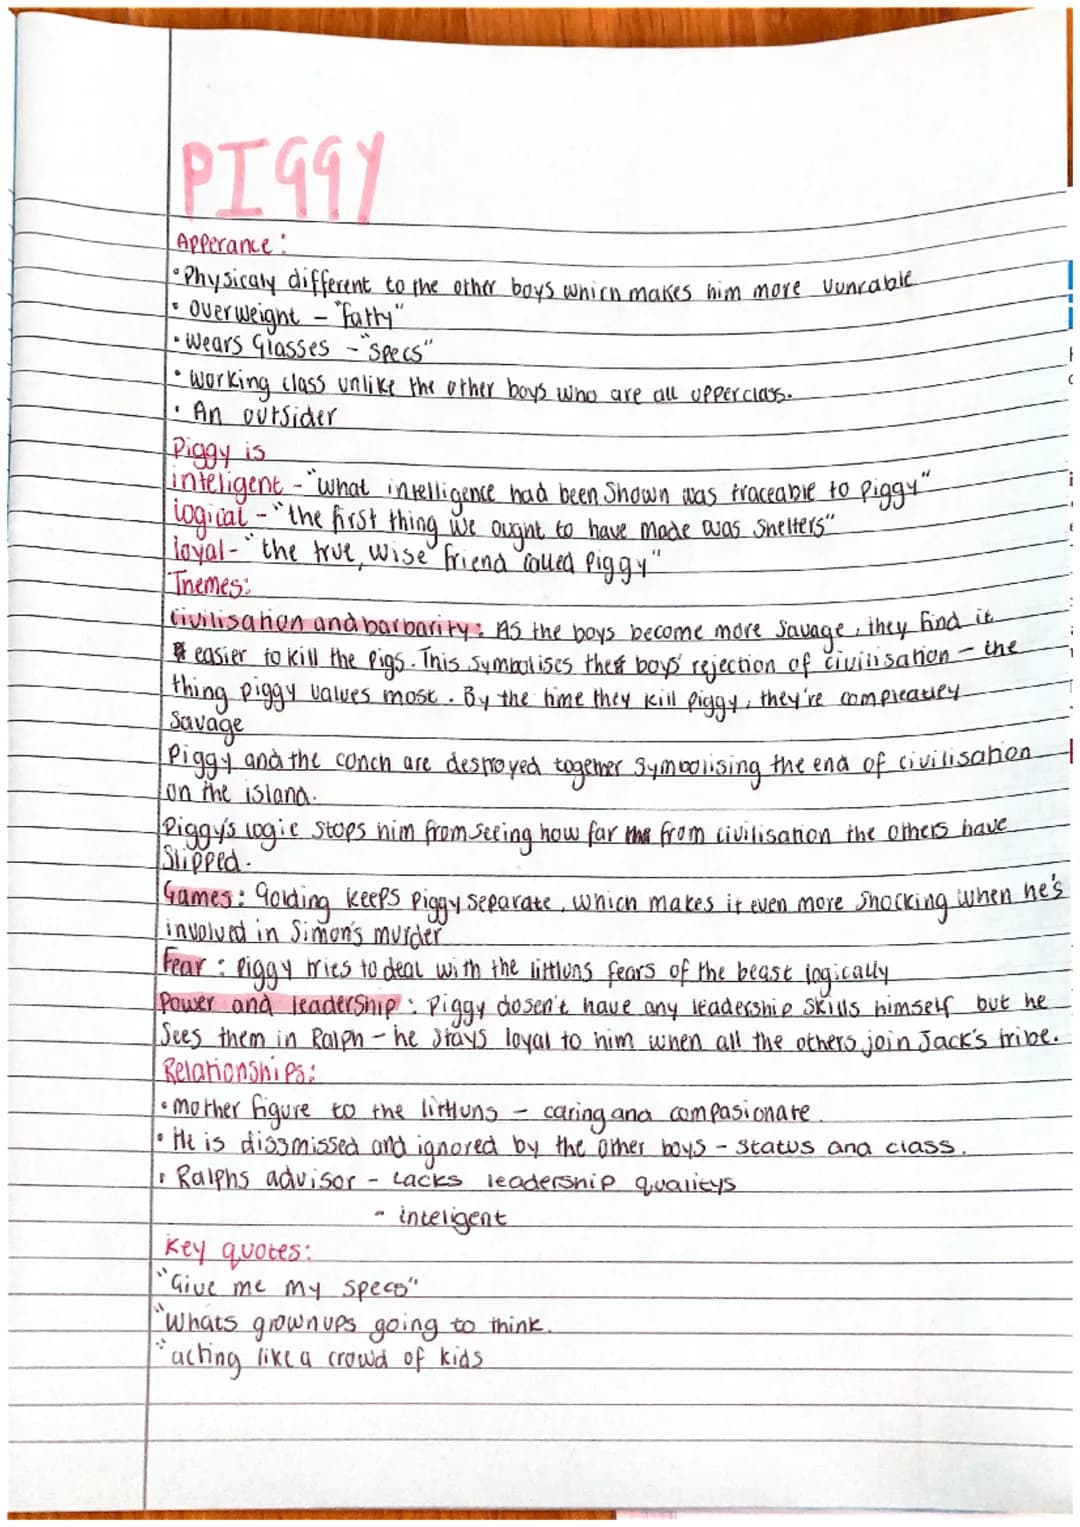 PIGGY
Apperance:
•Physicaly different to the other boys which makes him more vunrable
• Overweight - "fatty"
• Wears Glasses - "specs"
• Working class unlike the other boys who are all upperclass.
• An outsider
Piggy is
inteligent - "what intelligence had been shown was traceable to Piggy"
logical - "the first thing we ought to have made was shelters"
loyal - "the true, wise friend called Piggy"
Themes:
Civilisation and barbarity: As the boys become more savage, they find it
easier to kill the pigs. This symbolises the boys' rejection of civilisation - the
thing piggy values most. By the time they kill Piggy, they're compleatley
savage
Piggy and the conch are destroyed together symbolising the end of civilisation
on the island.
Piggy's logic stops him from seeing how far from civilisation the others have
slipped.
Games: Golding keeps Piggy separate, which makes it even more shocking when he's
involved in Simon's murder
Fear: Piggy tries to deal with the littluns fears of the beast logically
Power and leadership: Piggy dosen't have any leadership skills himself but he
sees them in Ralph - he stays loyal to him when all the others join Jack's tribe.
Relationships:
• mother figure to the littluns - caring and compasionate
• He is dissmissed and ignored by the other boys - status and class.
• Ralphs advisor - lacks leadership qualitys
- inteligent
Key quotes:
"Give me my specs"
"Whats grownups going to think.
"acting like a crowd of kids